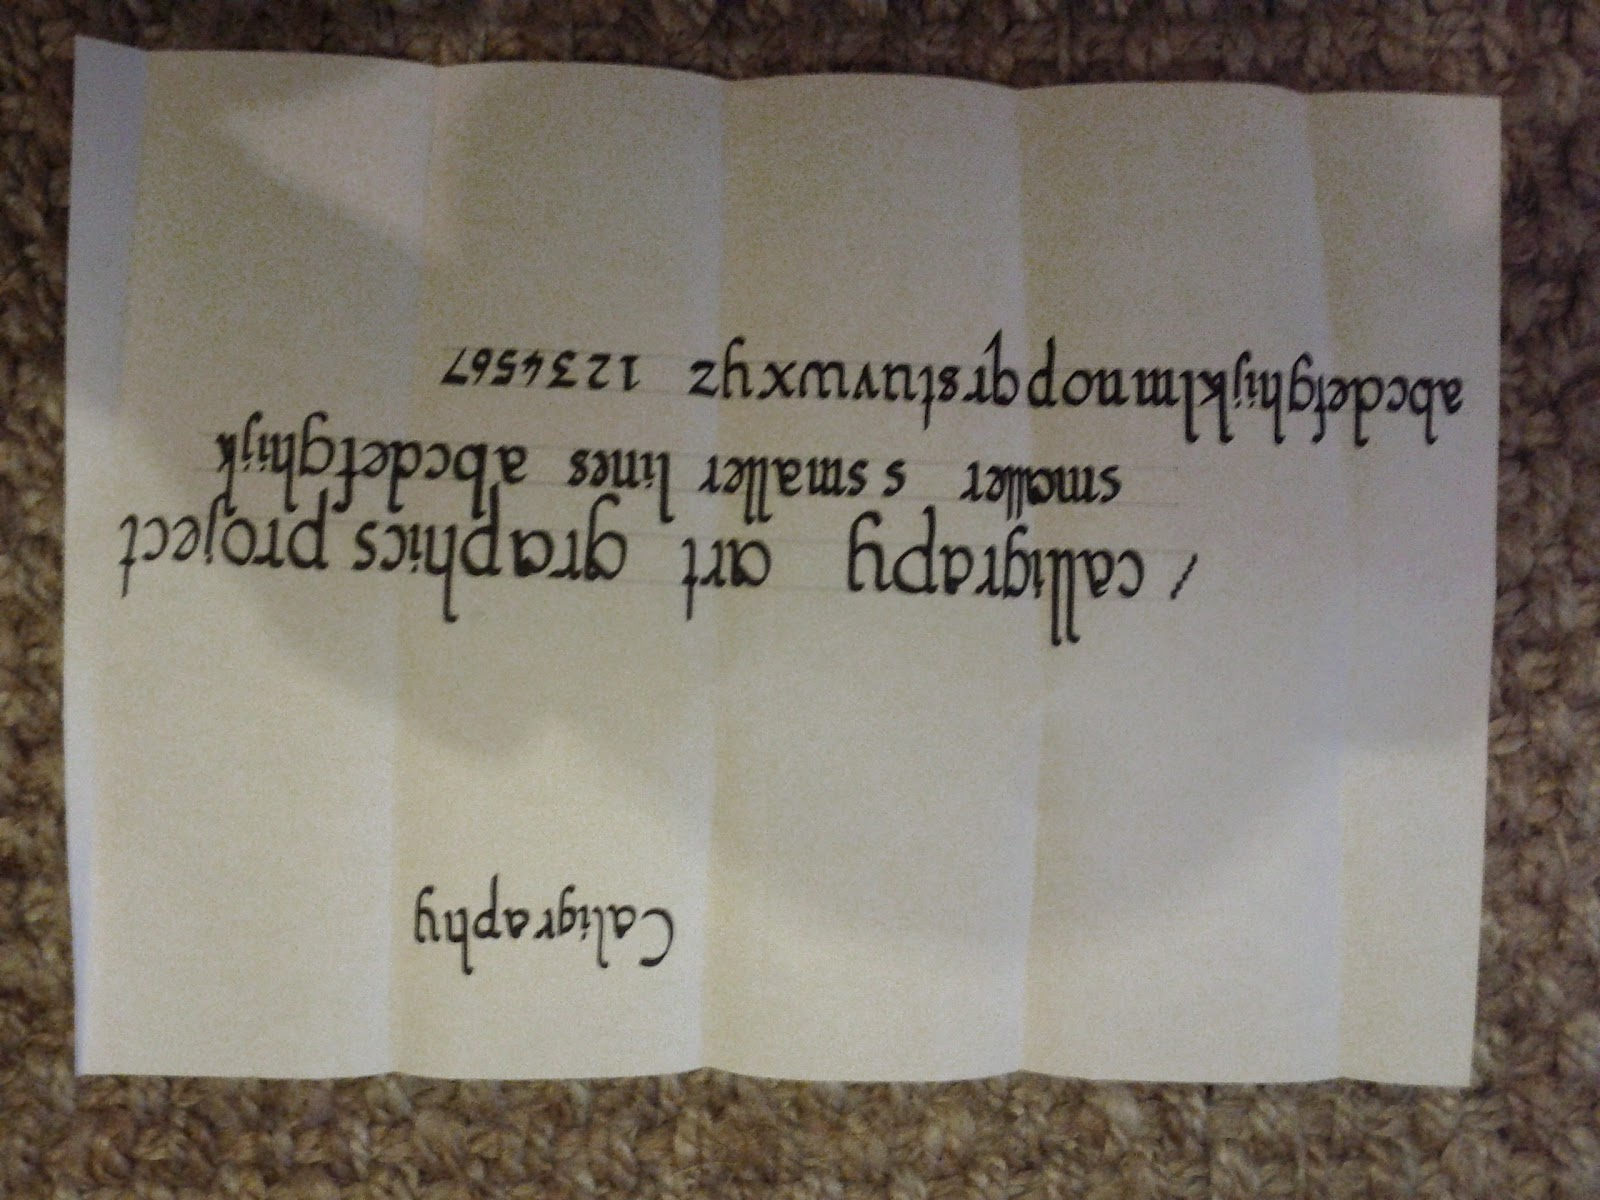 Caligraphy
/ calligrapy art graphics project
smaller s smaller lines abcdefghijk
abcdefghijklmnopqrstuvwxyz 1234567